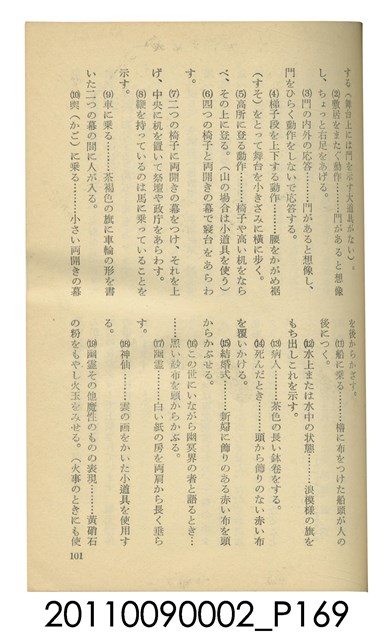 する（舞台上には門を示す大道具がない）。
(2)敷居をまたぐ動作………門があると想像
し、ちょっと右足をあげる。
(3)門の内外の応答………門があると想像し、
門をひらく動作をしないで応答する。
(4)梯子段を上下する動作………腰をかがめ裾
（すそ）をとって舞台を小きざみに横に歩く。
(5)高所に登る動作………椅子や高い机をなら
べ、その上に登る。（山の場合は小道具を使う）
(6)四つの椅子と両開きの幕で寝台をあらわ
す。
(7)二つの椅子に両開きの幕をつけ、それを上
げ、中央に机を置いて祭壇や政庁をあらわす。
(8)鞭を持っているのは馬に乗っていることを
示す。
(9)車に乗る………茶褐色の旗に車輪の形を書
いた二つの幕の間に人が入る。
(10)輿（かご）に乗る………小さい両開きの幕
を後からかざす。
(11)船に乗る………櫓に布をつけた船頭が人の
後につく。
(12)水上または水中の状態………浪模様の旗を
もち出しこれを示す。
(13)病人………茶色の長い鉢巻をする。
(14)死んだとき………頭から飾りのない赤い布
を覆いかける。
(15)結婚式………新婦に飾りのある赤い布を頭
からかぶせる。
(16)この世にいながら幽冥界の者と語るとき…
……黒い紗布を頭からかぶる。
(17)幽霊………白い紙の房を両肩から長く垂ら
す。
(18)神仙………雲の画をかいた小道具を使用す
る。
(19)幽霊その他魔性のものの表現………黄硝石
の粉をもやし火玉をみせる。（火事のときにも使
101
20110090002_P169